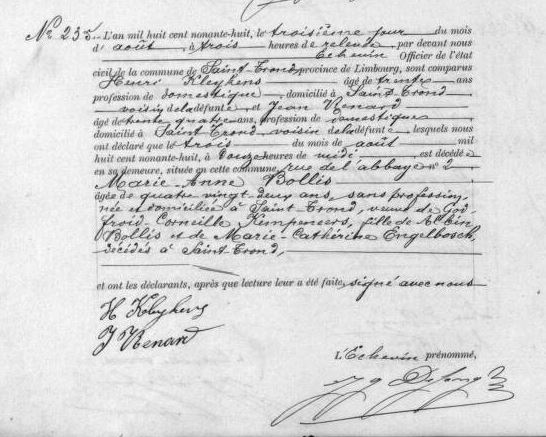 N° 235 L'an mil huit cent nonante-huit, le troisième jour du mois
d'août, à trois heures de relevée, par devant nous
Echevin Officier de l'état
civil de la commune de Saint-Trond, province de Limbourg, sont comparus
Henri Kleykens âgé de trente ans
profession de domestique, domicilié à Saint-Trond
voisin de la défunte, et Jean Renard
âgé de trente quatre ans, profession de domestique
domicilié à Saint-Trond voisin de la défunte, lesquels nous
ont déclaré que le trois du mois de août mil
huit cent nonante-huit, à douze heures de midi, est décédée
en sa demeure, située en cette commune, rue de l'abbaye n° 2
Marie-Anne Bollis
âgée de quatre vingt-deux ans, sans profession,
née et domiciliée à Saint-Trond, veuve de God-
froid-Corneille Kempeneers, fille de
Bollis et de Marie-Cathérine Engelbosch,
décédés à Saint-Trond,
et ont les déclarants, après que lecture leur a été faite, signé avec nous
H Kleykens
J Renard
L'Echevin prénommé,